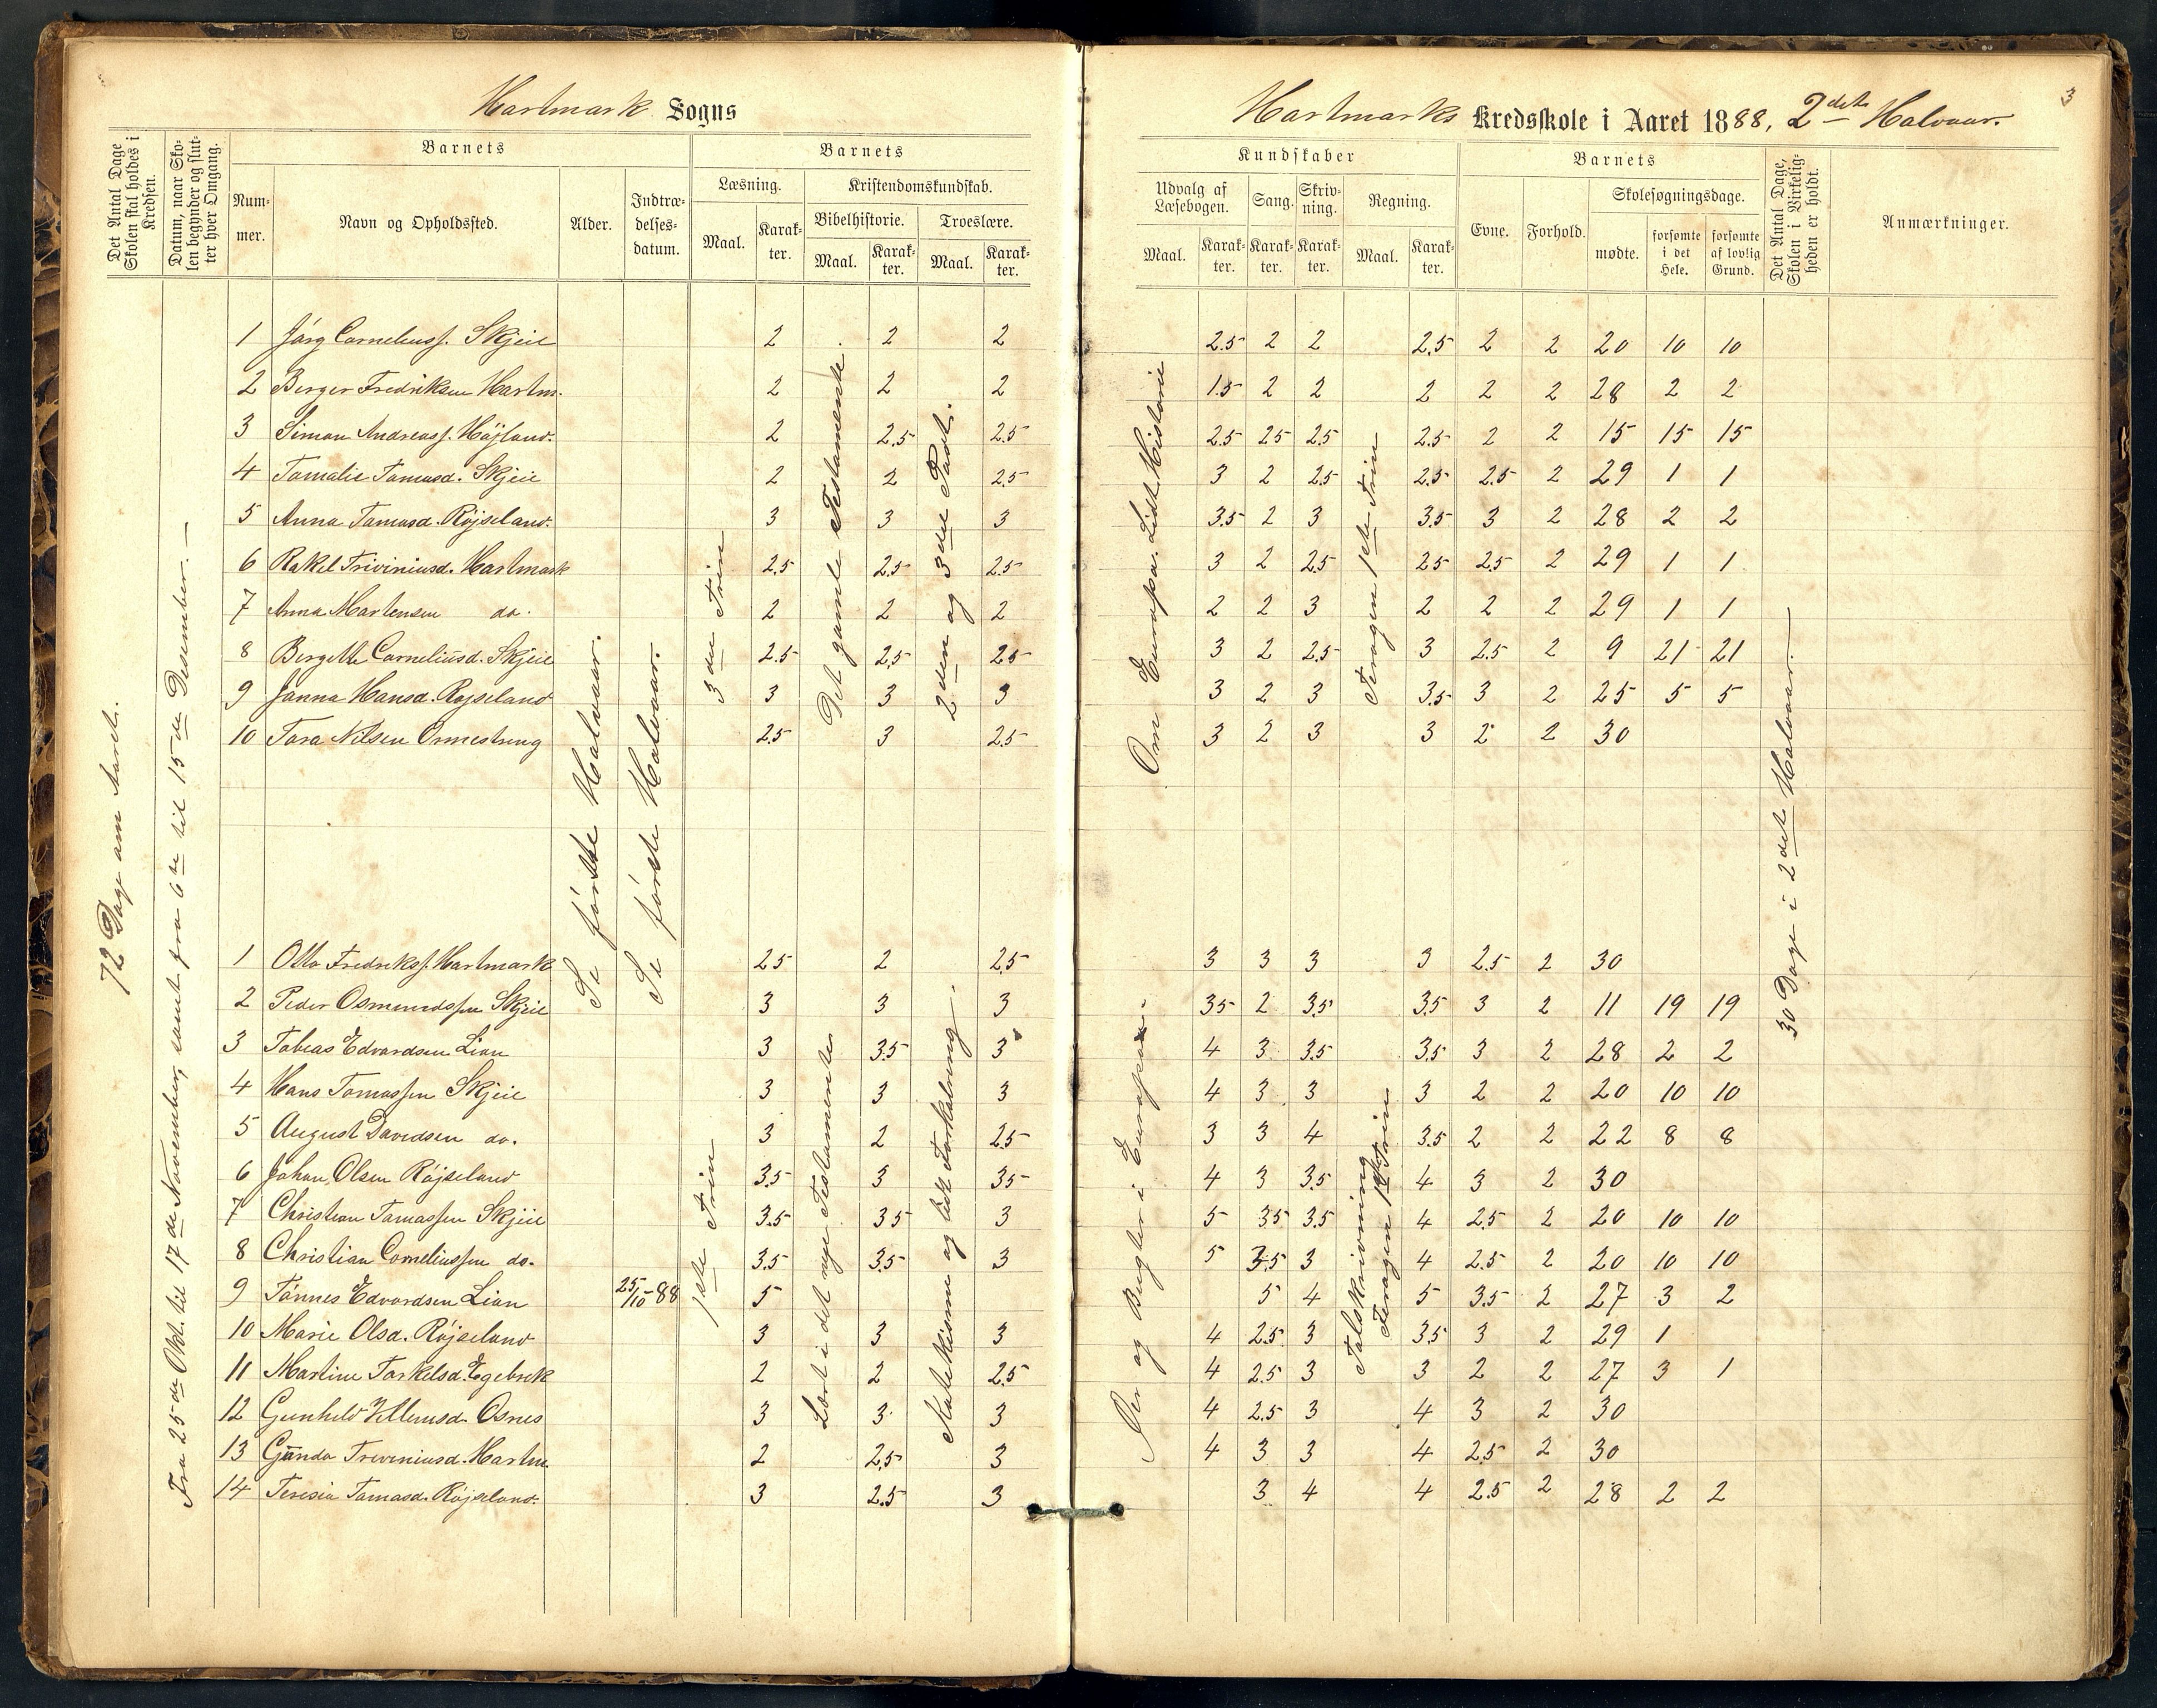 Hartmark Sogns
Hartmarks Kredsskole i Aaret 1888, 2det Halvaar.
3
Det Antal Dage Skolen skal holdes i Kredsen.
Datum, naar Skolen begynder og slutter hver Omgang.
Barnets
Nummer.
Navn og Opholdssted.
Alder.
Indtrædelsesdatum.
Barnets
Læsning.
Maal.
Karakter.
Kristendomskundskab.
Bibelhistorie.
Maal.
Karakter.
Troeslære.
Maal.
Karakter.
Kundskaber
Udvalg af Læsebogen.
Maal.
Karakter.
Sang.
Karakter.
Skrivning.
Karakter.
Regning.
Maal.
Karakter.
Barnets
Evne.
Forhold.
Skolesøgningsdage.
mødte.
forsømte i det Hele.
forsømte af lovlig Grund.
Det Antal Dage, Skolen i Virkeligheden er holdt.
Anmærkninger.
72 Dage om Aaret.
Fra 25de Okt. til 17de November, samt fra 6te til 15de Desember. —
Se första Halvaar.
Se första Halvaar.
3die Trin
Det gamle Testamente.
2den og 3die Part.
Om Europa. Lidt Historie
Terogen 1ste Trin
30 Dage i 2det Halvaar. —
1 Jörg Corneliuss. Skjeie 2 2 2 2.5 2 2 2.5 2 2 20 10 10
2 Berger Fredriksen Hartm. 2 2 2 1.5 2 2 2 2 2 28 2 2
3 Simon Andreass. Höjland. 2 2.5 2.5 2.5 2.5 2.5 2.5 2 2 15 15 15
4 Tomalie Tomasd. Skjeie 2 2 2.5 3 2 2.5 2.5 2.5 2 29 1 1
5 Anna Tomasd. Röjseland. 3 3 3 3.5 2 3 3.5 3 2 28 2 2
6 Rakel Triviniusd. Hartmark 2.5 2.5 2.5 3 2 2.5 2.5 2.5 2 29 1 1
7 Anna Martensen do. 2 2 2 2 2 3 2 2 2 29 1 1
8 Bergitte Corneliusd. Skjeie 2.5 2.5 2.5 3 2 2.5 3 2.5 2 9 21 21
9 Janna Hansd. Rojseland 3 3 3 3 2 3 3.5 3 2 25 5 5
10 Tora Nilsen Ormestreng 2.5 3 2.5 3 2 3 3 2 2 30
1ste Trin
Lært i det nye Testamentet
Katekismen og lidt Forklaring.
Øer og Bugter i Europa.
Talskrivning
Terogen 1ste Trin
1 Otto Fredrikss. Hartmark 2.5 2 2.5 3 3 3 3 2.5 2 30
2 Peder Osmundssen Skjeie 3 3 3 3.5 2 3.5 3.5 3 2 11 19 19
3 Tobias Edvardsen Lian 3 3.5 3 4 3 3.5 3.5 3 2 28 2 2
4 Hans Tomassen Skjeie 3 3 3 4 3 3 3 2 2 20 10 10
5 August Davidsen do. 3 2 2.5 3 3 4 3.5 2 2 22 8 8
6 Johan Olsen Röjseland 3.5 3 3.5 4 3 3.5 4 3 2 30
7 Christian Tomassen Skjeie 3.5 3.5 3 5 3.5 3.5 4 2.5 2 20 10 10
8 Christian Corneliussen do. 3.5 3.5 3 5 3.5 3 4 2.5 2 20 10 10
9 Tönnes Edvardsen Lian 25/10-88 5 5 4 5 3.5 2 27 3 2
10 Marie Olsd. Röjseland 3 3 3 4 2.5 3 3.5 3 2 29 1
11 Martine Torkelsd. Egebrek 2 2 2.5 4 2.5 3 3 2 2 27 3 1
12 Gunhild Villumsd. Osnes 3 3 3 4 2.5 3 4 3 2 30
13 Gunda Triviniusd. Hartm. 2 2.5 3 4 3 3 4 2.5 2 30
14 Teresia Tomasd. Röjseland. 3 2.5 3 3 4 4 2.5 2 28 2 2